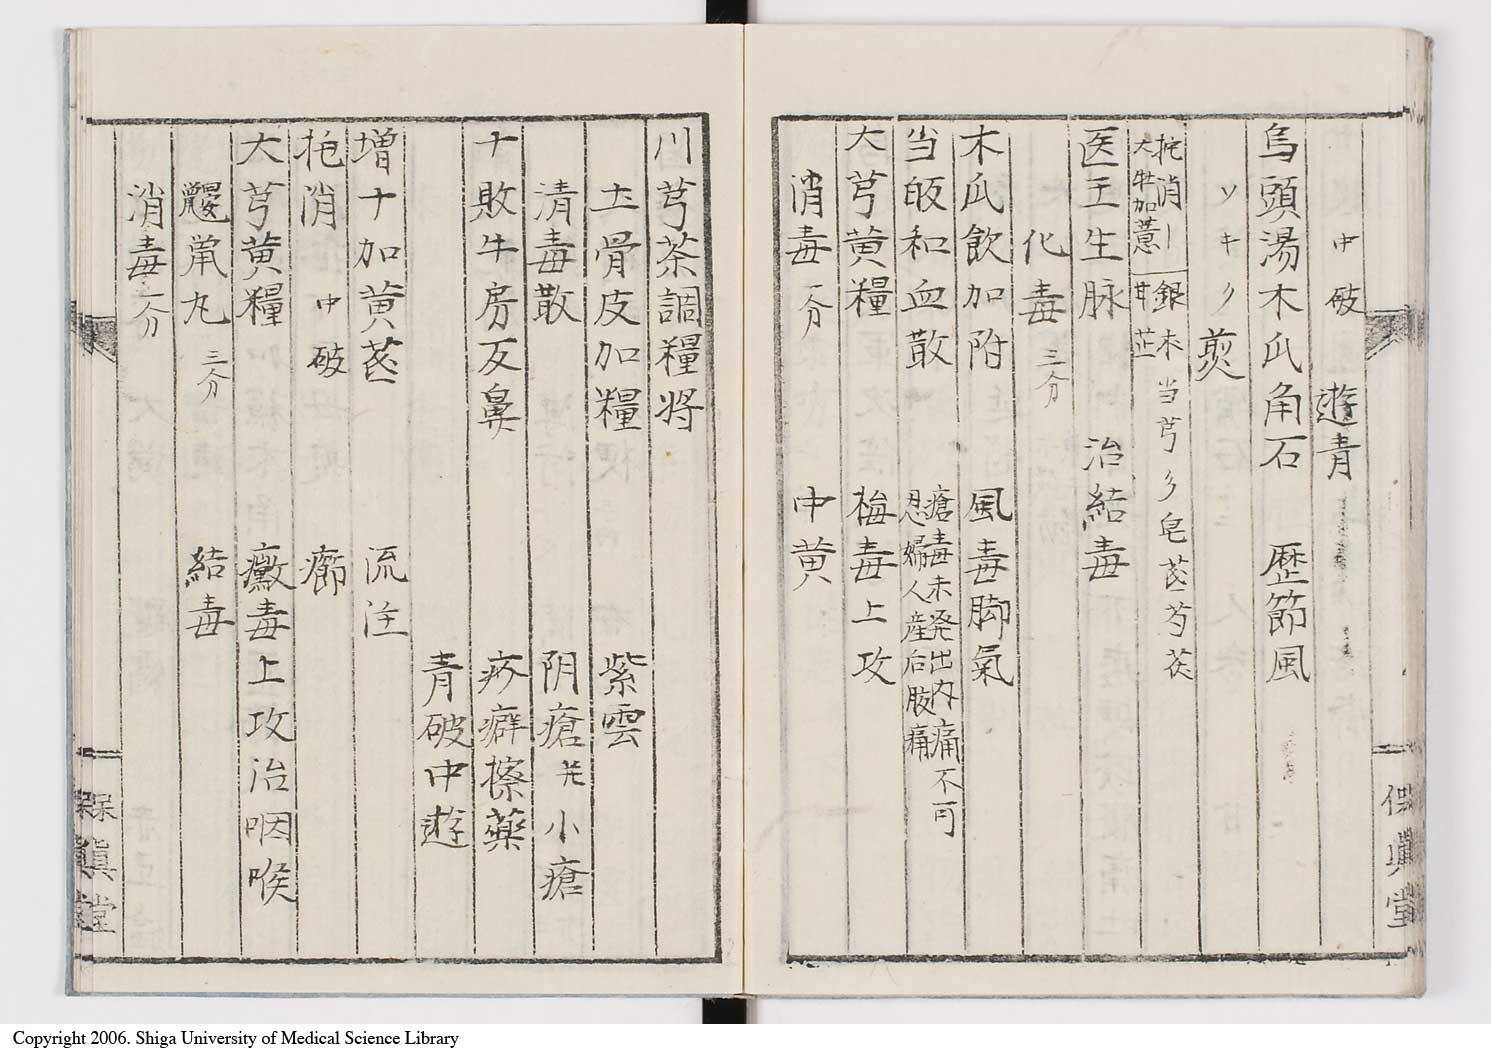 中破 遊青
烏頭湯木瓜角石 歴節風
ツキ夕煎
托消丨銀木当芎夕皂芷芍茯
大牡加薏 甘芷
医王生脉 治結毒
化毒 三分
木瓜飲加附 風毒脚氣
当皈和血散 瘡毒未発出内痛不可
忍婦人産后肢痛
大芎黄糧 梅毒上攻
消毒 一分 中黄
保眞堂
川芎茶調糧将
土骨皮加糧 紫雲
清毒散 阴瘡 小瘡
十敗牛房反鼻 疥癬擦薬
青破中遊
増十加黄 流注
托消 中破 癤
大芎黄糧 黴毒上攻治咽喉
丸 三分 結毒
消毒 一分
保眞堂
Copyright 2006. Shiga University of Medical Science Library